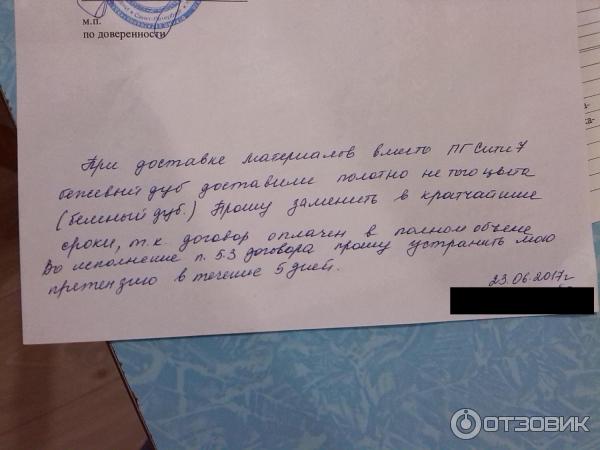 м.п.
по доверенности
При доставке материалов вместо ПГ Сити 7
бежевый дуб доставили полотно не того цвета
(беленый дуб.) Прошу заменить в кратчайшие
сроки, т.к. договор оплачен в полном объеме
Во исполнение п. 5.3 договора прошу устранить мою
претензию в течение 5 дней.
23.06.2017г
ОТЗОВИК